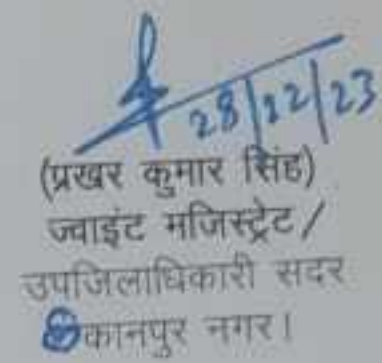 28/12/23
(प्रखर कुमार सिंह)
ज्वाइंट मजिस्ट्रेट/
उपजिलाधिकारी सदर
कानपुर नगर।